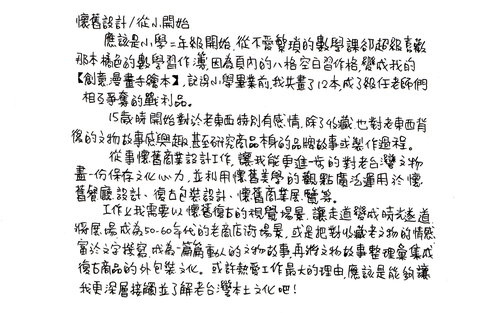 懷舊設計/從小開始
應該是小學二年級開始,從不愛繁瑣的數學課卻超級喜歡
那本橘色的數學習作簿,因為頁內的八格空白習作格,變成我的
【創意漫畫手繪本】,記得小學畢業前,我共畫了12本成了級任老師們
相互爭奪的戰利品。
15歲時開始對於老東西特別有感情,除了收藏也對老東西背
後的文物故事感興趣,甚至研究商品本身的品牌故事或製作過程。
從事懷舊商業設計工作,讓我能更進一步的對老台灣文物
盡一份保存文化心力,並利用懷舊美學的觀點廣泛運用於懷
舊餐廳設計、復古包裝設計、懷舊商業展覽等。
工作上我需要以懷舊復古的視覺場景,讓走道變成時光遂道,
將展場成為50-60年代的老商店街場景,或是把對收藏老文物的情感
富於文字撰寫,成為一篇篇動人的文物故事,再將文物故事整理彙集成
復古商品的外包裝文化。或許熱愛工作最大的理由,應該是能夠讓
我更深層接觸並了解老台灣本土文化吧!